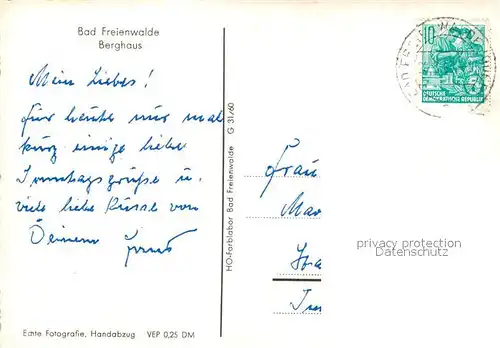 Bad Freienwalde
Berghaus
Mein Liebes!
Für heute nur mal
kurz einige liebe
Sonntagsgrüße u.
viele liebe Küsse von
Deinem
Echte Fotografie, Handabzug VEP 0,25 DM
HO-Farblabor Bad Freienwalde G 31/60
10
DEUTSCHE
DEMOKRATISCHE REPUBLIK
Frau
privacy protection
Datenschutz